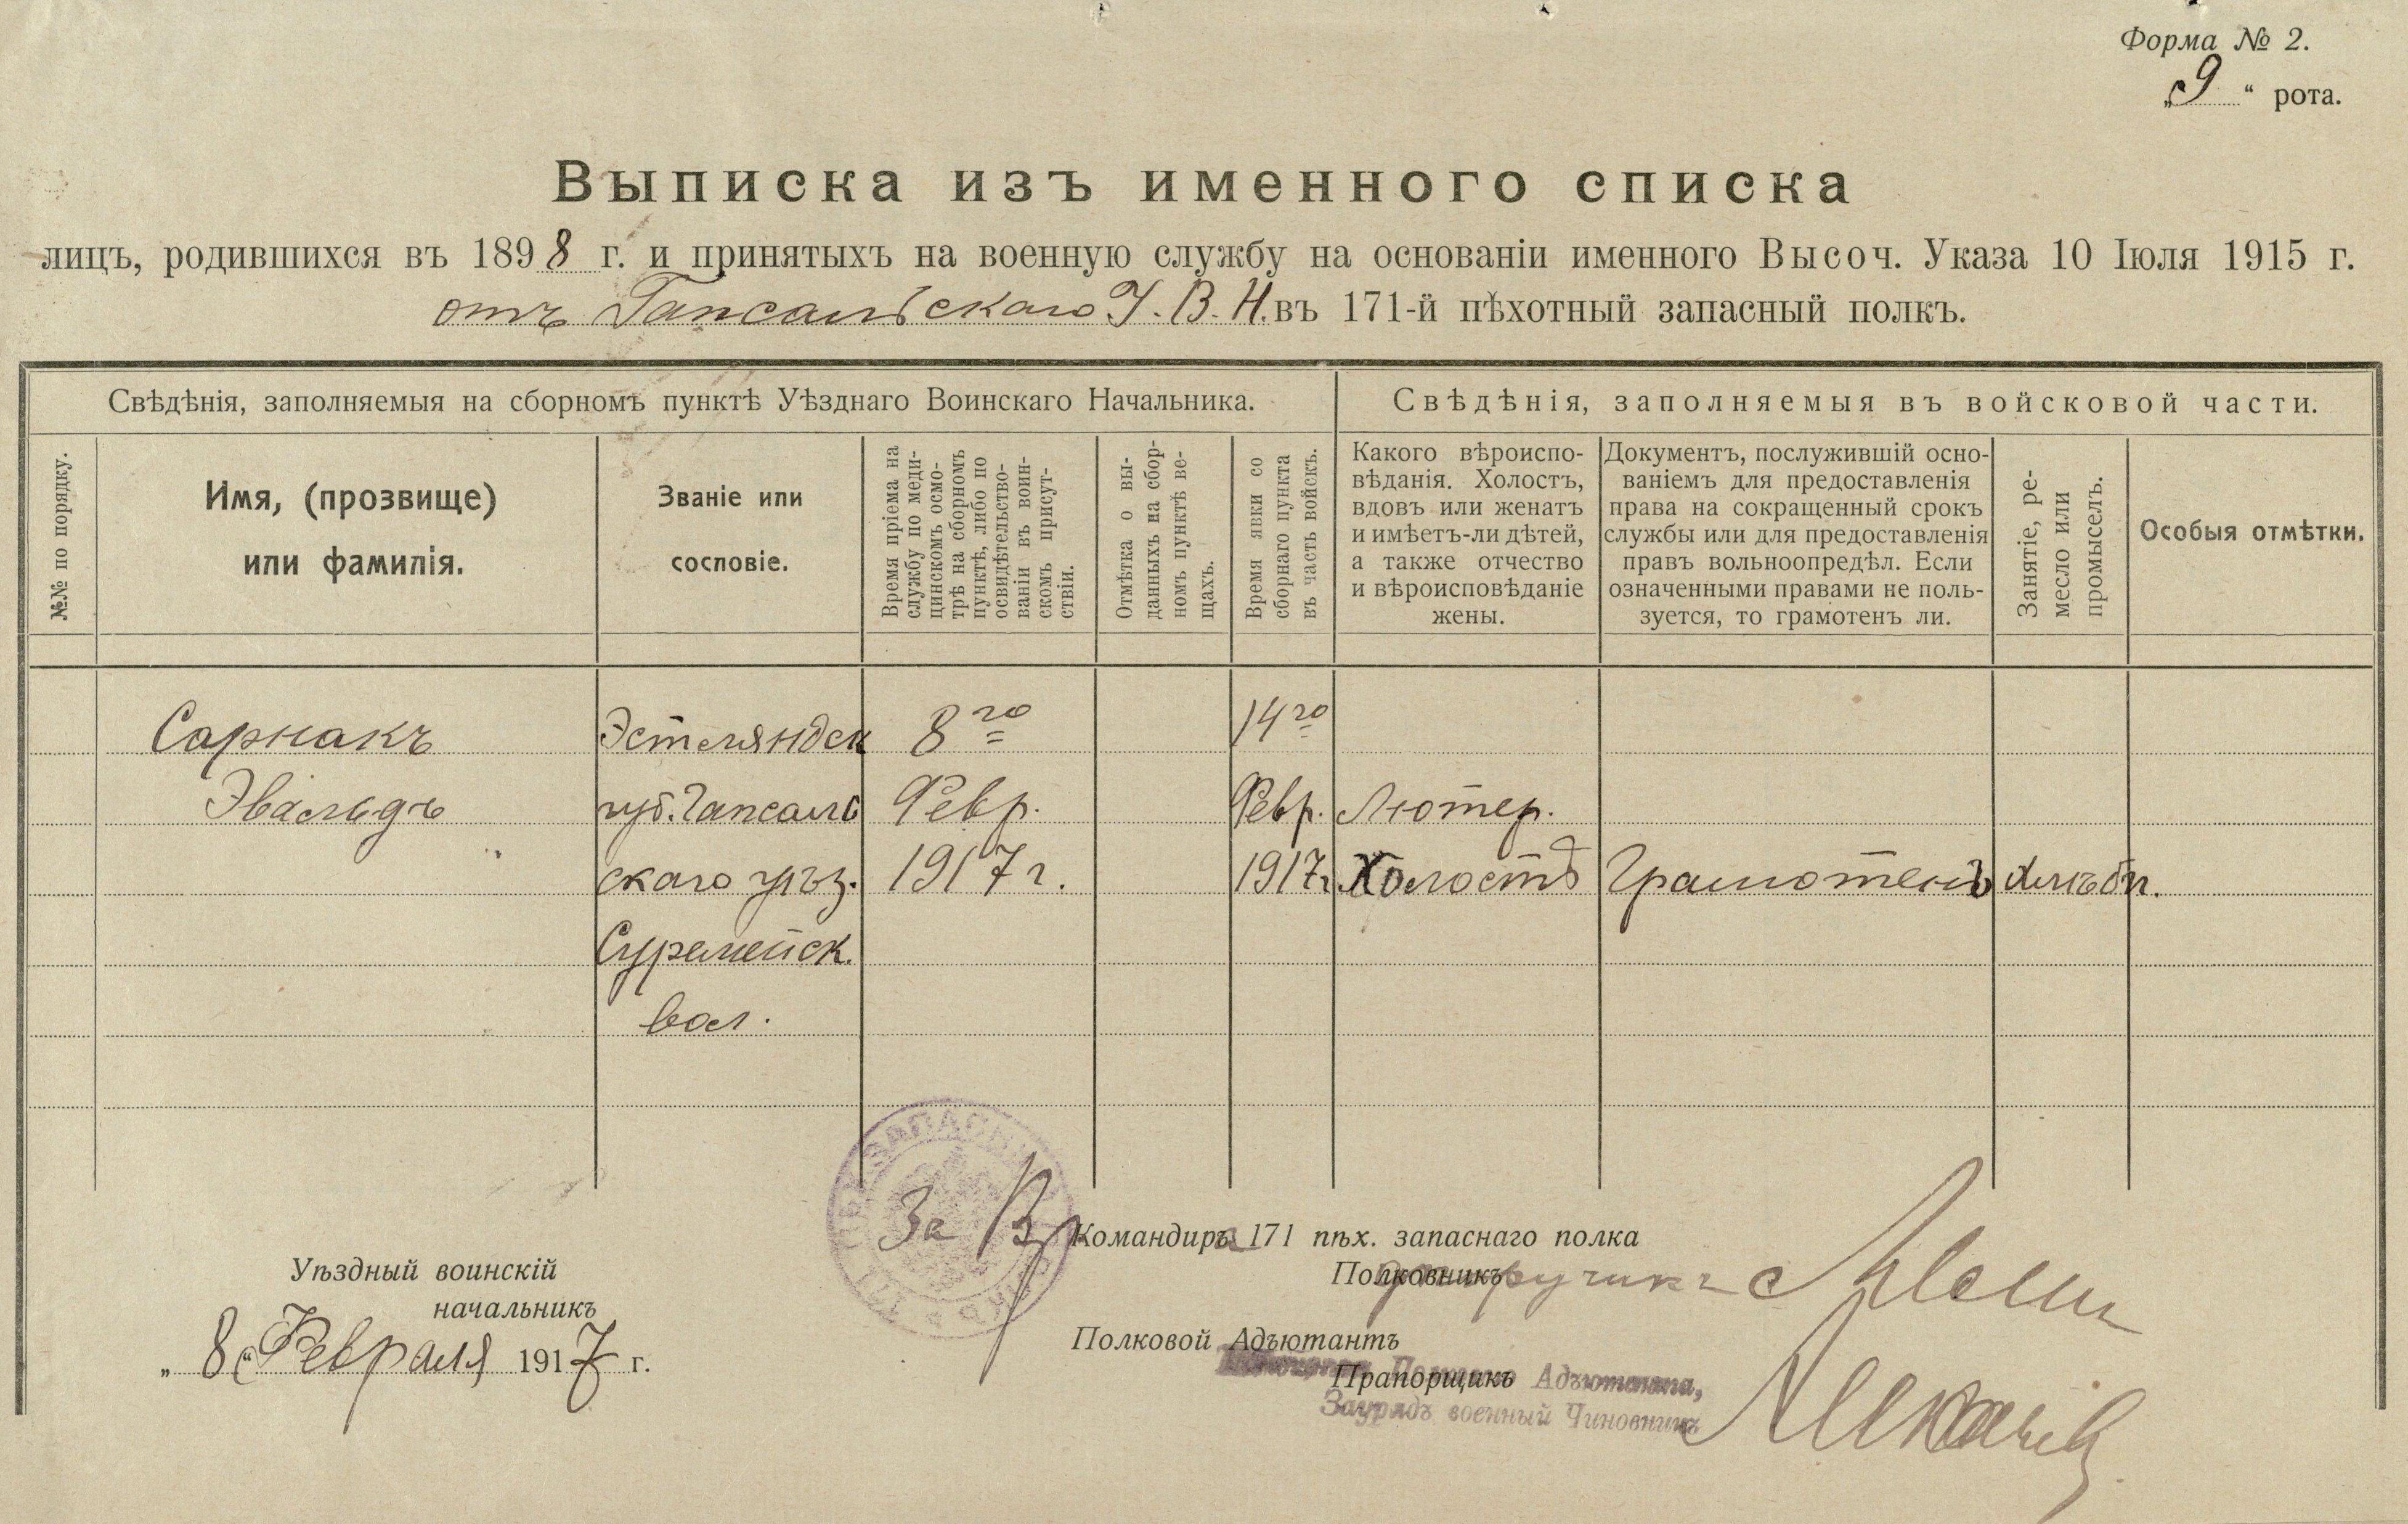 Форма № 2.
„9“ рота.
Выписка изъ именного списка
лицъ, родившихся въ 1898 г. и принятыхъ на военную службу на основаніи именного Высоч. Указа 10 Іюля 1915 г.
отъ Гапсальскаго У. В. Н. въ 171-й пѣхотный запасный полкъ.
Свѣдѣнія, заполняемыя на сборномъ пунктѣ Уѣзднаго Воинскаго Начальника.
Свѣдѣнія, заполняемыя въ войсковой части.
№№ по порядку.
Имя, (прозвище)
или фамилія.
Званіе или
сословіе.
Время пріема на
службу по меди-
цинскомъ осмо-
трѣ на сборномъ
пунктѣ, либо по
освидѣтельство-
ваніи въ воин-
скомъ присут-
ствіи.
Отмѣтка о вы-
данныхъ на сбор-
номъ пунктѣ ве-
щахъ.
Время явки со
сборнаго пункта
въ часть войскъ.
Какого вѣроиспо-
вѣданія. Холостъ,
вдовъ или женатъ
и имѣетъ-ли дѣтей,
а также отчество
и вѣроисповѣданіе
жены.
Документъ, послужившій осно-
ваніемъ для предоставленія
права на сокращенный срокъ
службы или для предоставленія
правъ вольноопредѣл. Если
означенными правами не поль-
зуется, то грамотенъ ли.
Занятіе, ре-
месло или
промыселъ.
Особыя отмѣтки.
Сарнакъ Эстляндск 8го 14го
Эвальдъ губ. Гапсаль Февр. Февр. Лютер.
скаго уѣз. 1917 г. 1917 г. Холостъ Грамотенъ хлѣбп.
Суремейск.
вол.
За Вр Командира 171 пѣх. запаснаго полка
Уѣздный воинскій
начальникъ
„8“ Февраля 1917 г.
Полковникъ
Полковой Адъютантъ
Прапорщикъ
Адъютанта,
Зауряд военный Чиновникъ